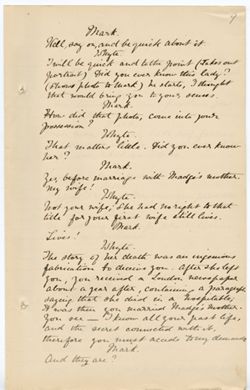 7
Mark.
Well, say on, and be quick about it
Whyte.
I will be quick and to the point (Takes out
portrait) Did you ever know this lady?
(Shows photo to Mark, he starts, I thought
that would bring you to your senses
Mark.
How did that photo, come into your
possession?
Whyte.
That matters little. Did you ever know
her?
Mark.
Yes, before marriage with Madge's mother.
My wife!
Whyte.
Not your wife, she had no right to that
title for your first wife still lives.
Mark.
Lives!
Whyte.
The story of her death was an ingenious
fabrication to deceive you. After she left
you, you received a London newspaper
about a year after, containing a paragraph
saying that she died in a hospital,
It was then you married Madge's mother.
You see — I know all your past life,
and the secret connected with it,
therefore you must accede to my demands
Mark.
And they are?